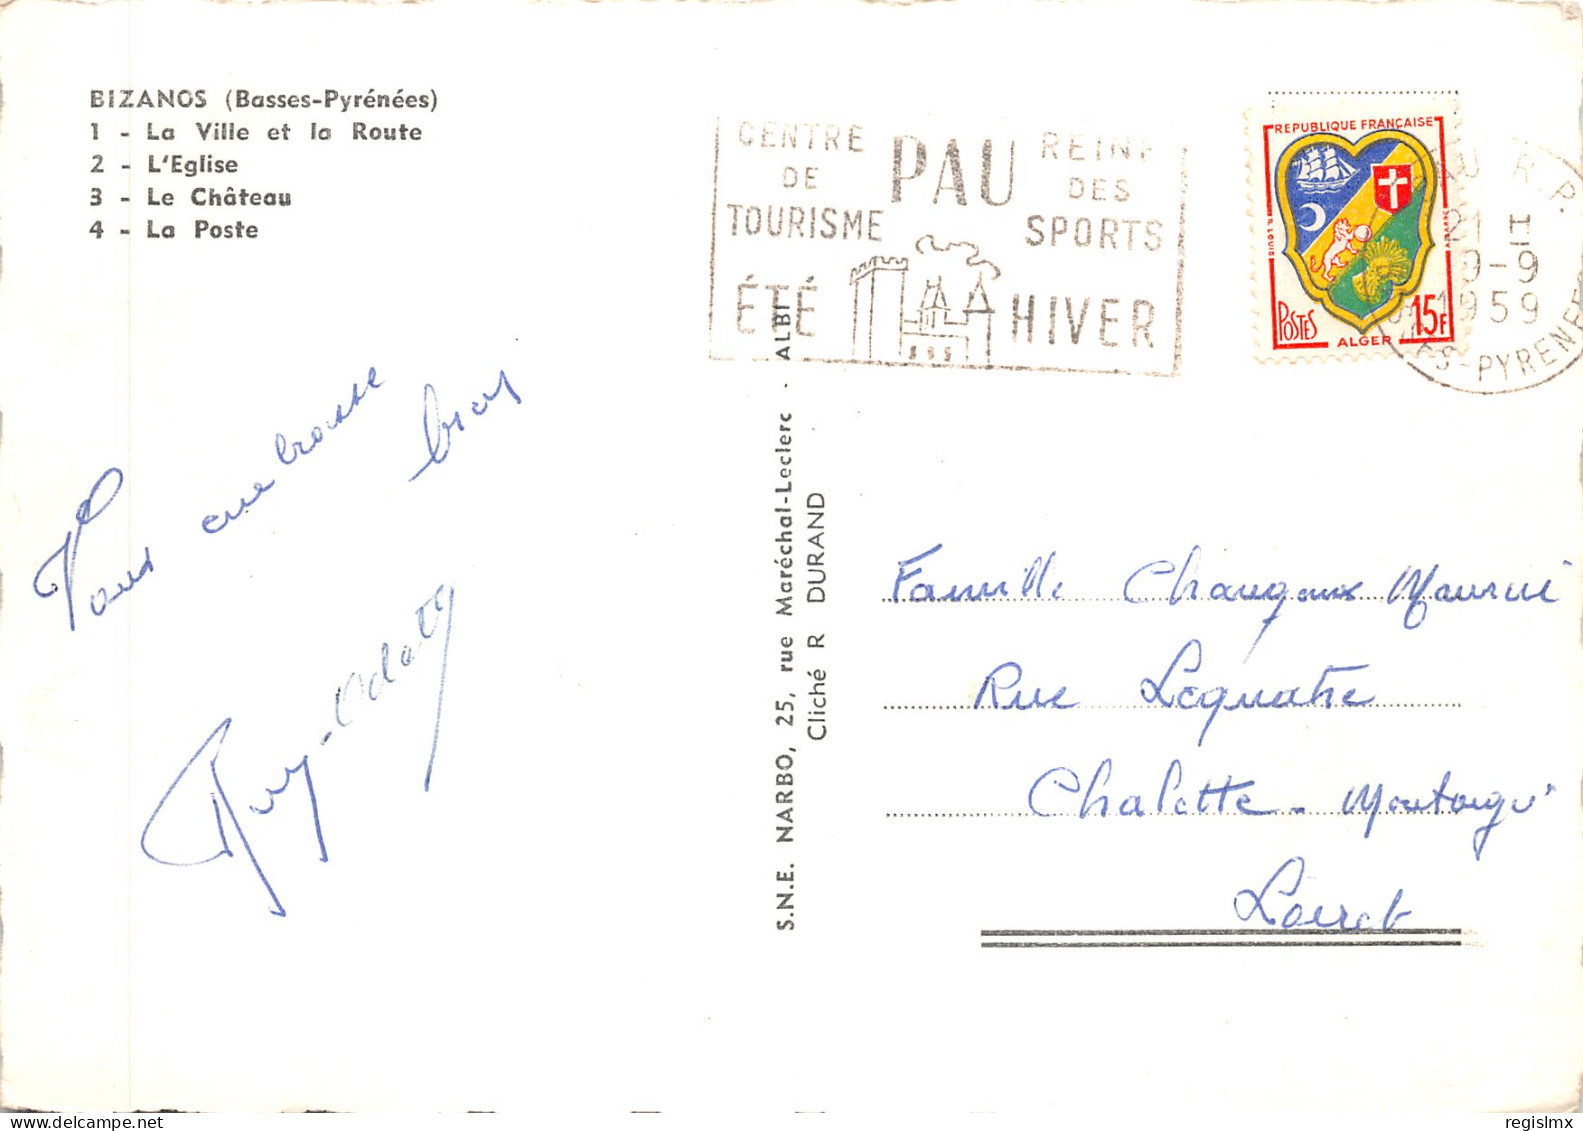 BIZANOS (Basses-Pyrénées)
1 - La Ville et la Route
2 - L'Eglise
3 - Le Château
4 - La Poste
CENTRE DE TOURISME
PAU
REINE DES SPORTS
ÉTÉ HIVER
REPUBLIQUE FRANÇAISE
POSTES
ALGER
15F
PAU R.P.
21 H
9-9
1959
BSES-PYRENEES
Vous embrasse
bien
Guy-Odette
S.N.E. NARBO, 25, rue Maréchal-Leclerc - ALBI
Cliché R DURAND
Famille Maurice
Rue Lequatre
Chalette - Montargis
Loiret
regislmx